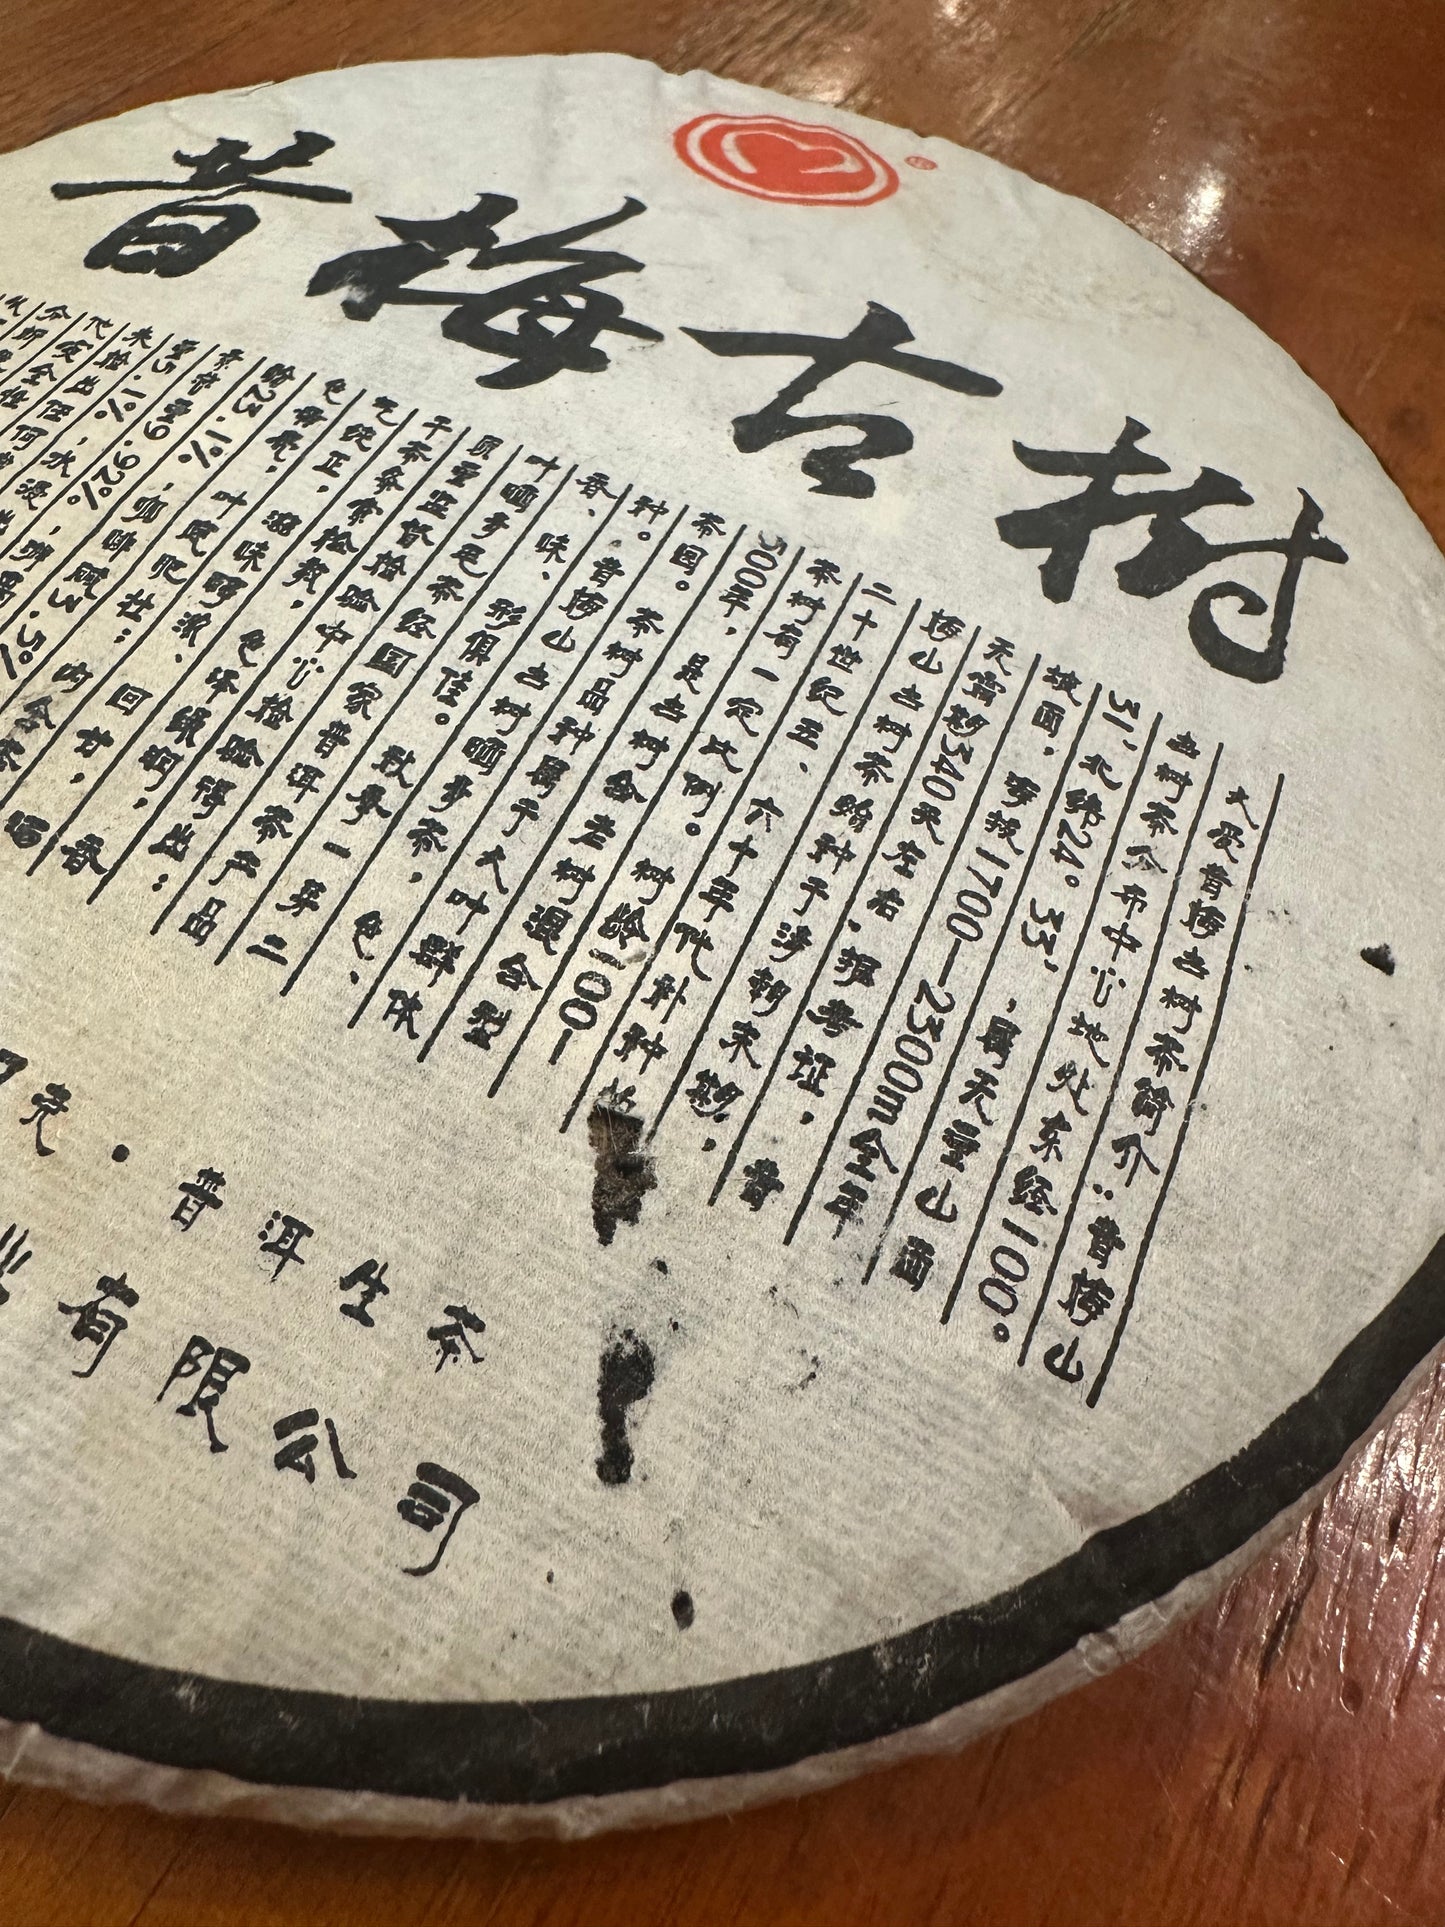 昔梅古树
大爱昔梅古树茶简介:昔梅山
古树茶分布中心地处东经100°
31、北纬24°33、,属天宝山西
坡面,海拔1700—2300m全年
天雾期340天左右,据考证,昔
梅山古树茶始种于清朝末期,
二十世纪五、六十年代补种的
茶树有一定比例。树龄100—
500年,是古树老树混合型
茶园。茶树品种属于大叶群体
种。昔梅山古树晒青茶,色、
香、味、形俱佳。秋季一芽二
叶晒青毛茶经国家普洱茶产品
质量监督检验中心检验得出:
干茶条索松散,色泽绿润,香
气纯正,滋味醇浓、回甘,汤
色明亮,叶底肥壮;内含茶
23.1%,咖啡碱3.5%
量9.92%,水浸
量5.1%
未检出任何
克·普洱生茶
有限公司